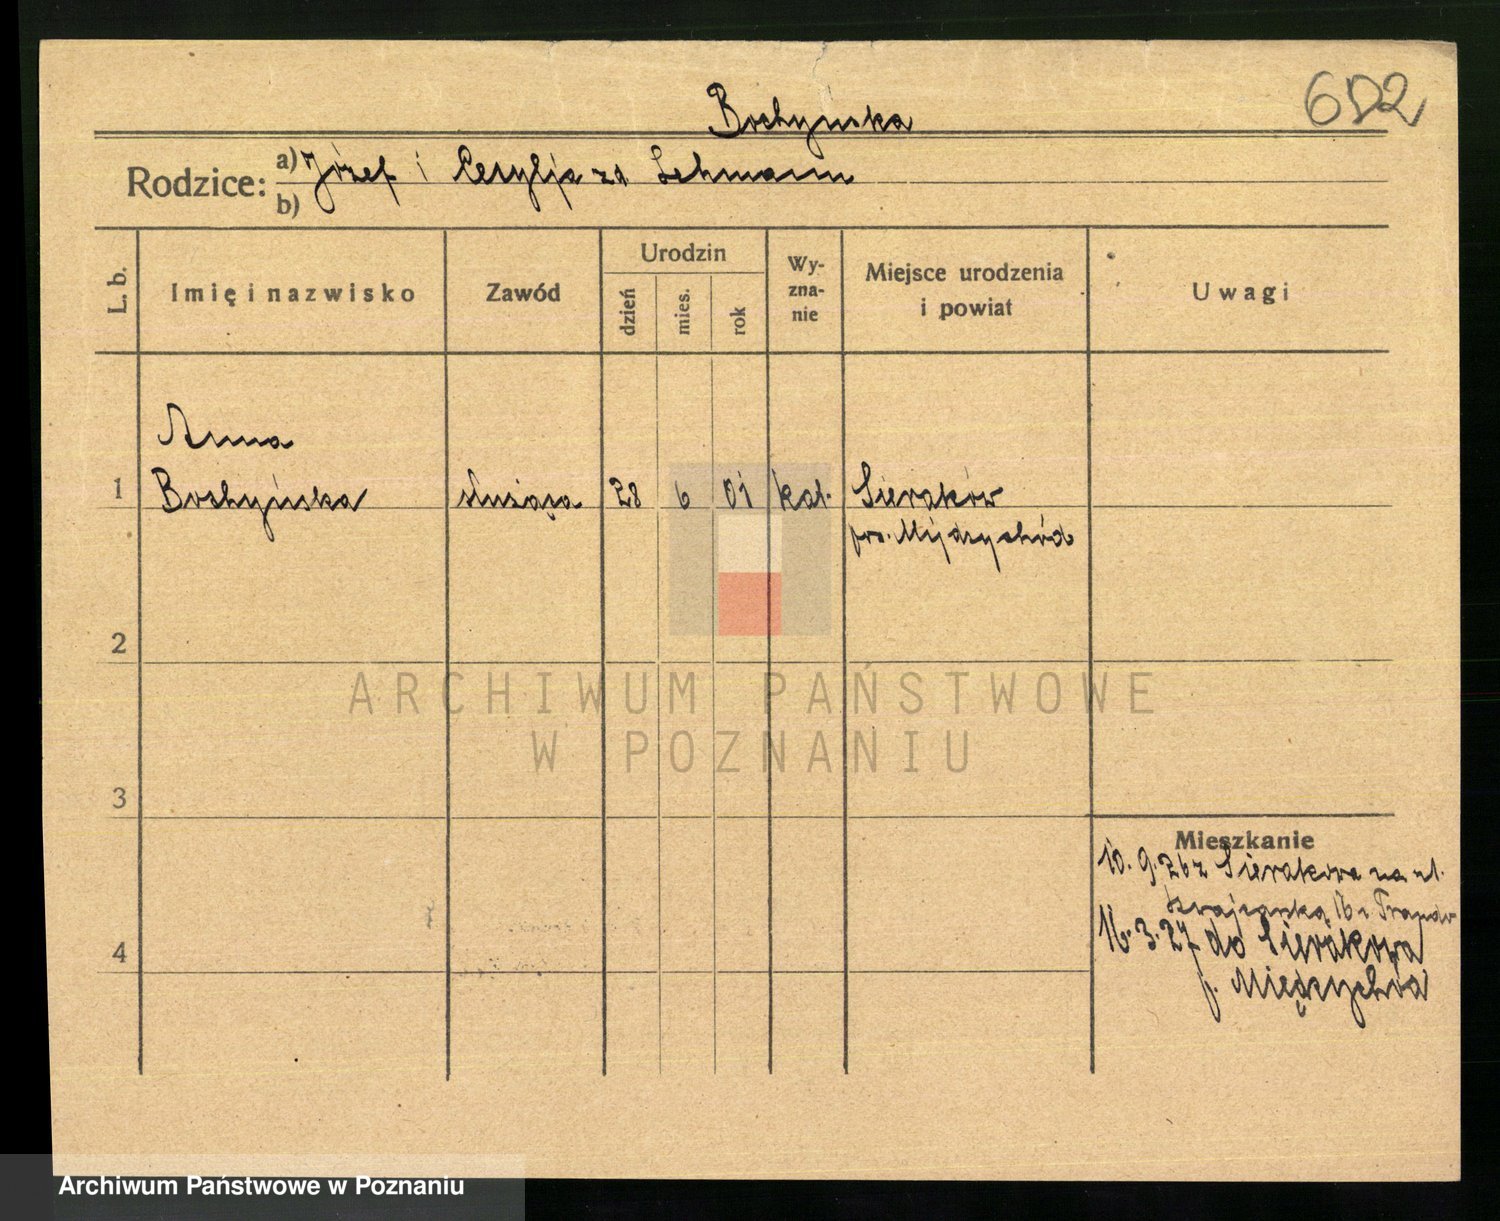 Bochyńska
6D2
Rodzice: a) Józef i Cecylja zd Lehmann
b)
L. b.
Imię i nazwisko
Zawód
Urodzin
dzień
mies.
rok
Wy-
zna-
nie
Miejsce urodzenia
i powiat
Uwagi
Anna
1 Bochyńska służąca 28 6 01 kat. Sieraków
pow. Międzychód
2
ARCHIWUM PAŃSTWOWE
W POZNANIU
3
Mieszkanie
10. 9. 26 z Sierakowa na ul.
16
16. 3. 27 do Sierakowa
4
p. Międzychód
Archiwum Państwowe w Poznaniu